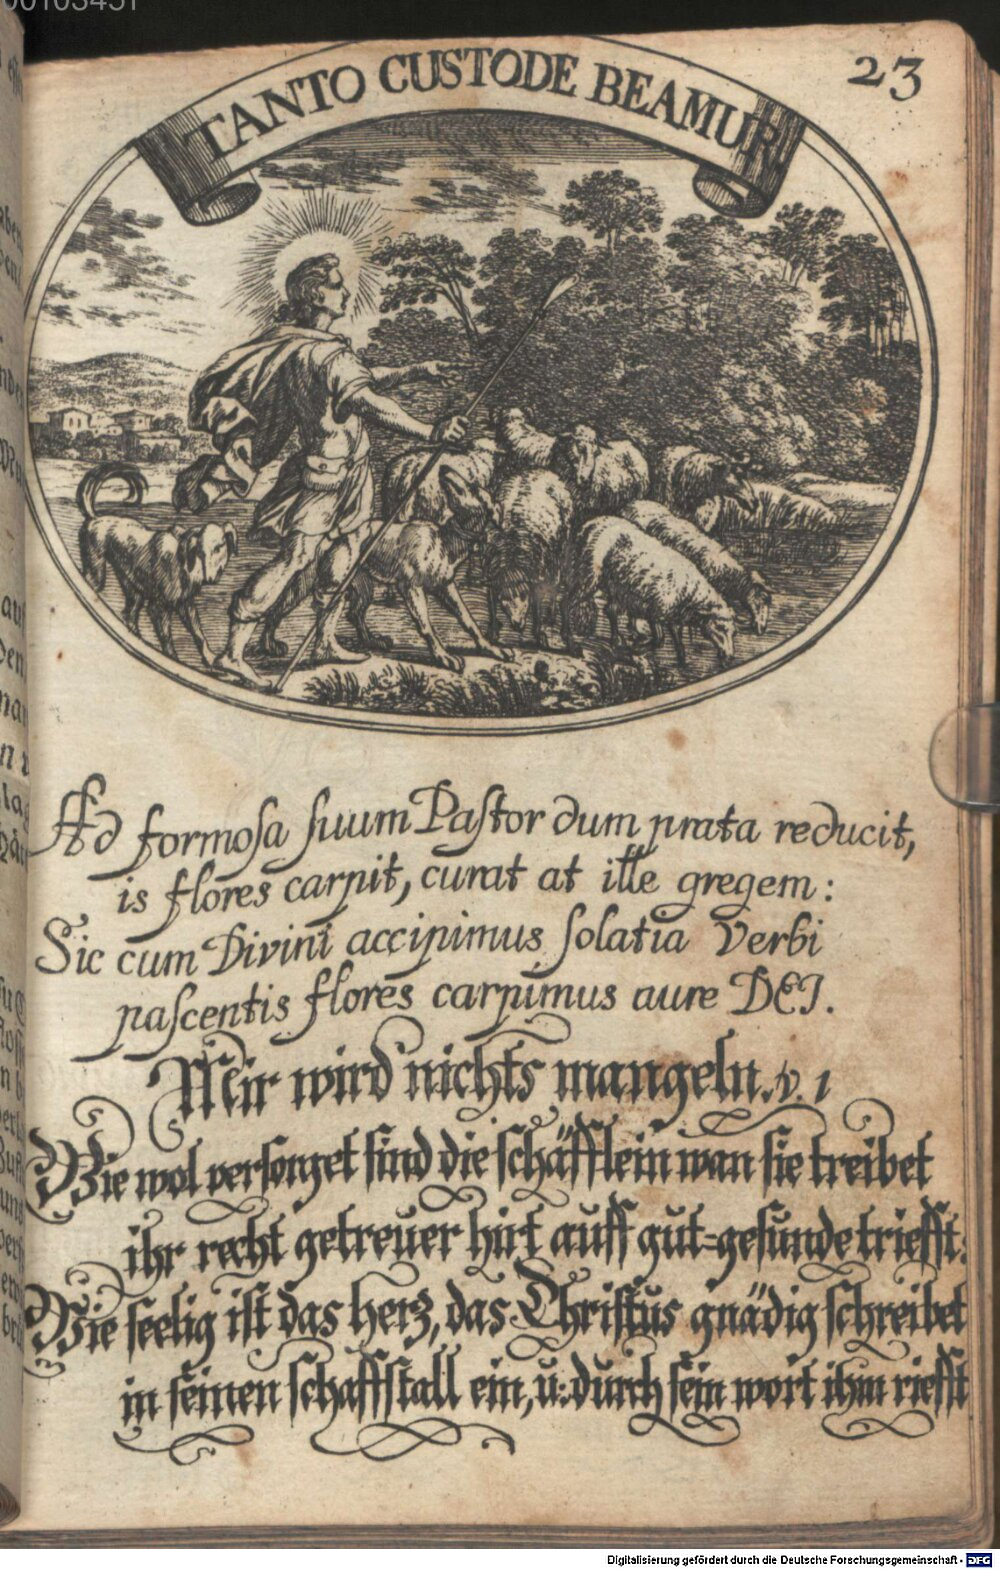 00103451
23
TANTO CUSTODE BEAMUR
Ad formosa suum Pastor dum prata reducit,
is flores carpit, curat at ille gregem:
Sic cum Divini accipimus solatia Verbi
pascentis flores carpimus aure DEI.
Mir wird nichts mangeln. v. 1
Wie wol versorget sind die schäfflein wan sie treibet
ihr recht getreuer hirt auff gut=gesunde triefft:
Wie seelig ist das herz, das Christus gnädig schreibet
in seinen schaffstall ein, u: durch sein wort ihm riefft
Digitalisierung gefördert durch die Deutsche Forschungsgemeinschaft - DFG